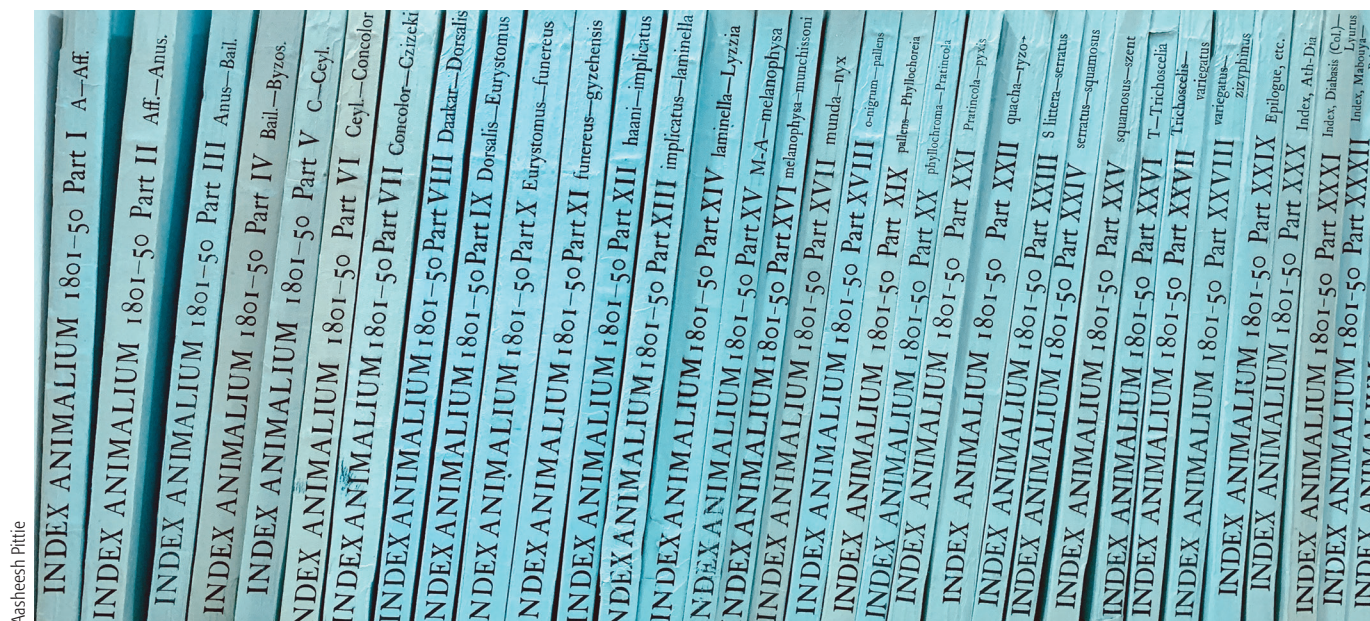 INDEX ANIMALIUM 1801–50 Part I A—Aff.
INDEX ANIMALIUM 1801–50 Part II Aff.—Anus.
INDEX ANIMALIUM 1801–50 Part III Anus—Bail.
INDEX ANIMALIUM 1801–50 Part IV Bail.—Byzos.
INDEX ANIMALIUM 1801–50 Part V C—Ceyl.
INDEX ANIMALIUM 1801–50 Part VI Ceyl—Concolor
INDEX ANIMALIUM 1801–50 Part VII Concolor—Czizeki
INDEX ANIMALIUM 1801–50 Part VIII Daakar—Dorsalis
NDEX ANIMALIUM 1801–50 Part IX Dorsalis—Eurystomus
INDEX ANIMALIUM 1801–50 Part X Eurystomus—funereus
NDEX ANIMALIUM 1801–50 Part XI funereus—gyzehensis
INDEX ANIMALIUM 1801–50 Part XII haani—implicatus
NDEX ANIMALIUM 1801–50 Part XIII implicatus—laminella
INDEX ANIMALIUM 1801–50 Part XIV laminella—Lyzzia
NDEX ANIMALIUM 1801–50 Part XV M-A—melanophysa
INDEX ANIMALIUM 1801–50 Part XVI melanophysa—munchissoni
INDEX ANIMALIUM 1801–50 Part XVII munda—nyx
INDEX ANIMALIUM 1801–50 Part XVIII o-nigrum—pallens
INDEX ANIMALIUM 1801–50 Part XIX pallens—Phyllochoreia
INDEX ANIMALIUM 1801–50 Part XX phyllochroma—Pratincola
INDEX ANIMALIUM 1801–50 Part XXI Pratincola—pyxis
INDEX ANIMALIUM 1801–50 Part XXII quacha—ryzo-
INDEX ANIMALIUM 1801–50 Part XXIII S littera—serratus
INDEX ANIMALIUM 1801–50 Part XXIV serratus—squamosus
INDEX ANIMALIUM 1801–50 Part XXV squamosus—szent
INDEX ANIMALIUM 1801–50 Part XXVI T—Trichoscelia
INDEX ANIMALIUM 1801–50 Part XXVII Trichoscelis—
variegatus
INDEX ANIMALIUM 1801–50 Part XXVIII variegatus—
zizyphinus
INDEX ANIMALIUM 1801–50 Part XXIX Epilogue, etc.
INDEX ANIMALIUM 1801–50 Part XXX Index, Ath-Dia
INDEX ANIMALIUM 1801–50 Part XXXI Index, Diabasis (Col.)
Lyurus
INDEX ANIMALIUM 1801–50 Index, Mabouya—
Aasheesh Pittie